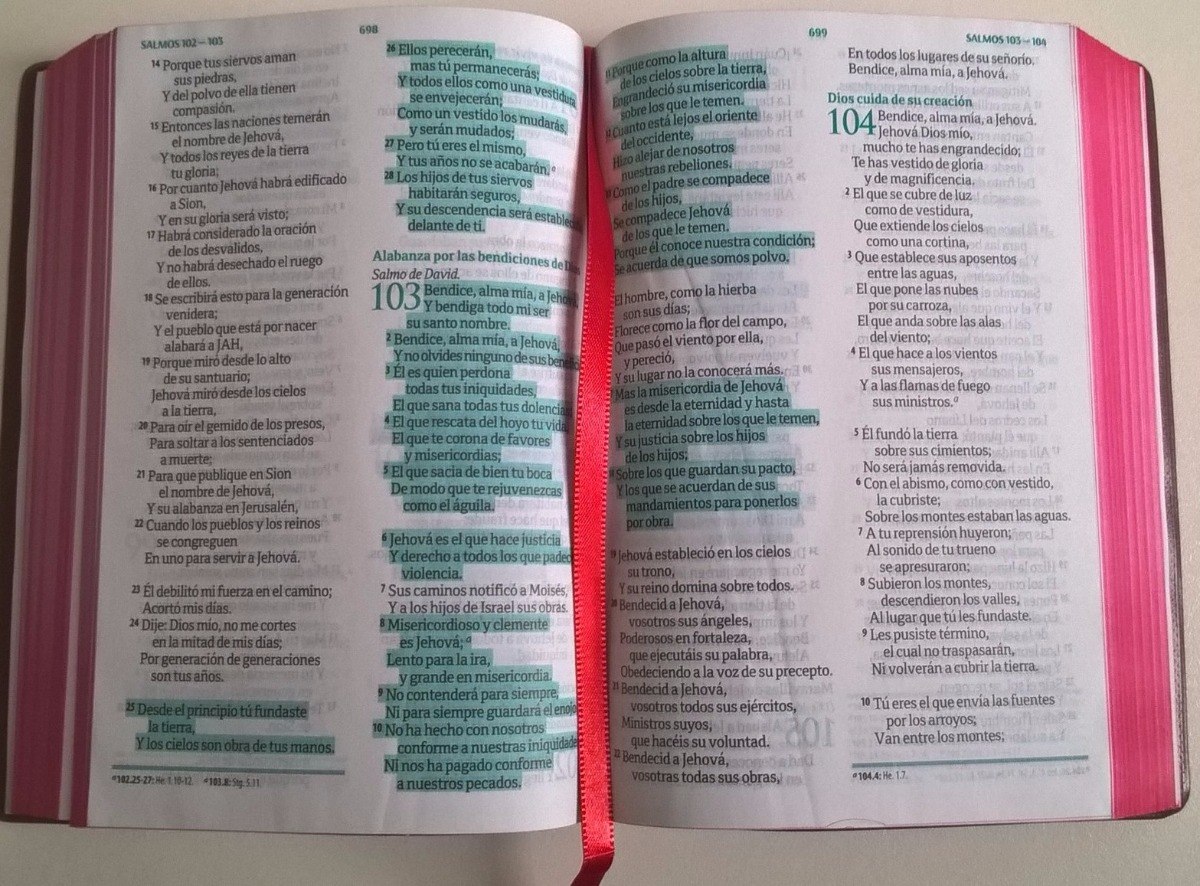 698
SALMOS 102—103
14 Porque tus siervos aman
sus piedras,
Y del polvo de ella tienen
compasión.
15 Entonces las naciones temerán
el nombre de Jehová,
Y todos los reyes de la tierra
tu gloria;
16 Por cuanto Jehová habrá edificado
a Sion,
Y en su gloria será visto;
17 Habrá considerado la oración
de los desvalidos,
Y no habrá desechado el ruego
de ellos.
18 Se escribirá esto para la generación
venidera;
Y el pueblo que está por nacer
alabará a JAH,
19 Porque miró desde lo alto
de su santuario;
Jehová miró desde los cielos
a la tierra,
20 Para oír el gemido de los presos,
Para soltar a los sentenciados
a muerte;
21 Para que publique en Sion
el nombre de Jehová,
Y su alabanza en Jerusalén,
22 Cuando los pueblos y los reinos
se congreguen
En uno para servir a Jehová.
23 Él debilitó mi fuerza en el camino;
Acortó mis días.
24 Dije: Dios mío, no me cortes
en la mitad de mis días;
Por generación de generaciones
son tus años.
25 Desde el principio tú fundaste
la tierra,
Y los cielos son obra de tus manos.
a 102.25-27: He. 1.10-12. a 103.8: Stg. 5.11.
26 Ellos perecerán,
mas tú permanecerás;
Y todos ellos como una vestidura
se envejecerán;
Como un vestido los mudarás,
y serán mudados;
27 Pero tú eres el mismo,
Y tus años no se acabarán.a
28 Los hijos de tus siervos
habitarán seguros,
Y su descendencia será
delante de ti.
Alabanza por las bendiciones de
Salmo de David.
103 Bendice, alma mía, a
Y bendiga todo mi ser
su santo nombre.
2 Bendice, alma mía, a Jehová,
Y no olvides ninguno de sus
3 Él es quien perdona
todas tus iniquidades,
El que sana todas tus
4 El que rescata del hoyo tu vida
El que te corona de favores
y misericordias;
5 El que sacia de bien tu boca
De modo que te rejuvenezcas
como el águila.
6 Jehová es el que hace justicia
Y derecho a todos los que
violencia.
7 Sus caminos notificó a Moisés,
Y a los hijos de Israel sus obras.
8 Misericordioso y clemente
es Jehová;a
Lento para la ira,
y grande en misericordia.
9 No contenderá para siempre,
Ni para siempre guardará el enojo
10 No ha hecho con nosotros
conforme a nuestras
Ni nos ha pagado conforme
a nuestros pecados.
699
SALMOS 103—104
Porque como la altura
de los cielos sobre la tierra,
Engrandeció su misericordia
sobre los que le temen.
Cuanto está lejos el oriente
del occidente,
Hizo alejar de nosotros
nuestras rebeliones.
Como el padre se compadece
de los hijos,
Se compadece Jehová
de los que le temen.
Porque él conoce nuestra condición;
Se acuerda de que somos polvo.
El hombre, como la hierba
son sus días;
Florece como la flor del campo,
Que pasó el viento por ella,
y pereció,
Y su lugar no la conocerá más.
Mas la misericordia de Jehová
es desde la eternidad y hasta
la eternidad sobre los que le temen,
Y su justicia sobre los hijos
de los hijos;
Sobre los que guardan su pacto,
Y los que se acuerdan de sus
mandamientos para ponerlos
por obra.
19 Jehová estableció en los cielos
su trono,
Y su reino domina sobre todos.
20 Bendecid a Jehová,
vosotros sus ángeles,
Poderosos en fortaleza,
que ejecutáis su palabra,
Obedeciendo a la voz de su precepto.
21 Bendecid a Jehová,
vosotros todos sus ejércitos,
Ministros suyos,
que hacéis su voluntad.
22 Bendecid a Jehová,
vosotras todas sus obras,
En todos los lugares de su señorío.
Bendice, alma mía, a Jehová.
Dios cuida de su creación
104 Bendice, alma mía, a Jehová.
Jehová Dios mío,
mucho te has engrandecido;
Te has vestido de gloria
y de magnificencia.
2 El que se cubre de luz
como de vestidura,
Que extiende los cielos
como una cortina,
3 Que establece sus aposentos
entre las aguas,
El que pone las nubes
por su carroza,
El que anda sobre las alas
del viento;
4 El que hace a los vientos
sus mensajeros,
Y a las flamas de fuego
sus ministros.a
5 Él fundó la tierra
sobre sus cimientos;
No será jamás removida.
6 Con el abismo, como con vestido,
la cubriste;
Sobre los montes estaban las aguas.
7 A tu reprensión huyeron;
Al sonido de tu trueno
se apresuraron;
8 Subieron los montes,
descendieron los valles,
Al lugar que tú les fundaste.
9 Les pusiste término,
el cual no traspasarán,
Ni volverán a cubrir la tierra.
10 Tú eres el que envía las fuentes
por los arroyos;
Van entre los montes;
a 104.4: He. 1.7.